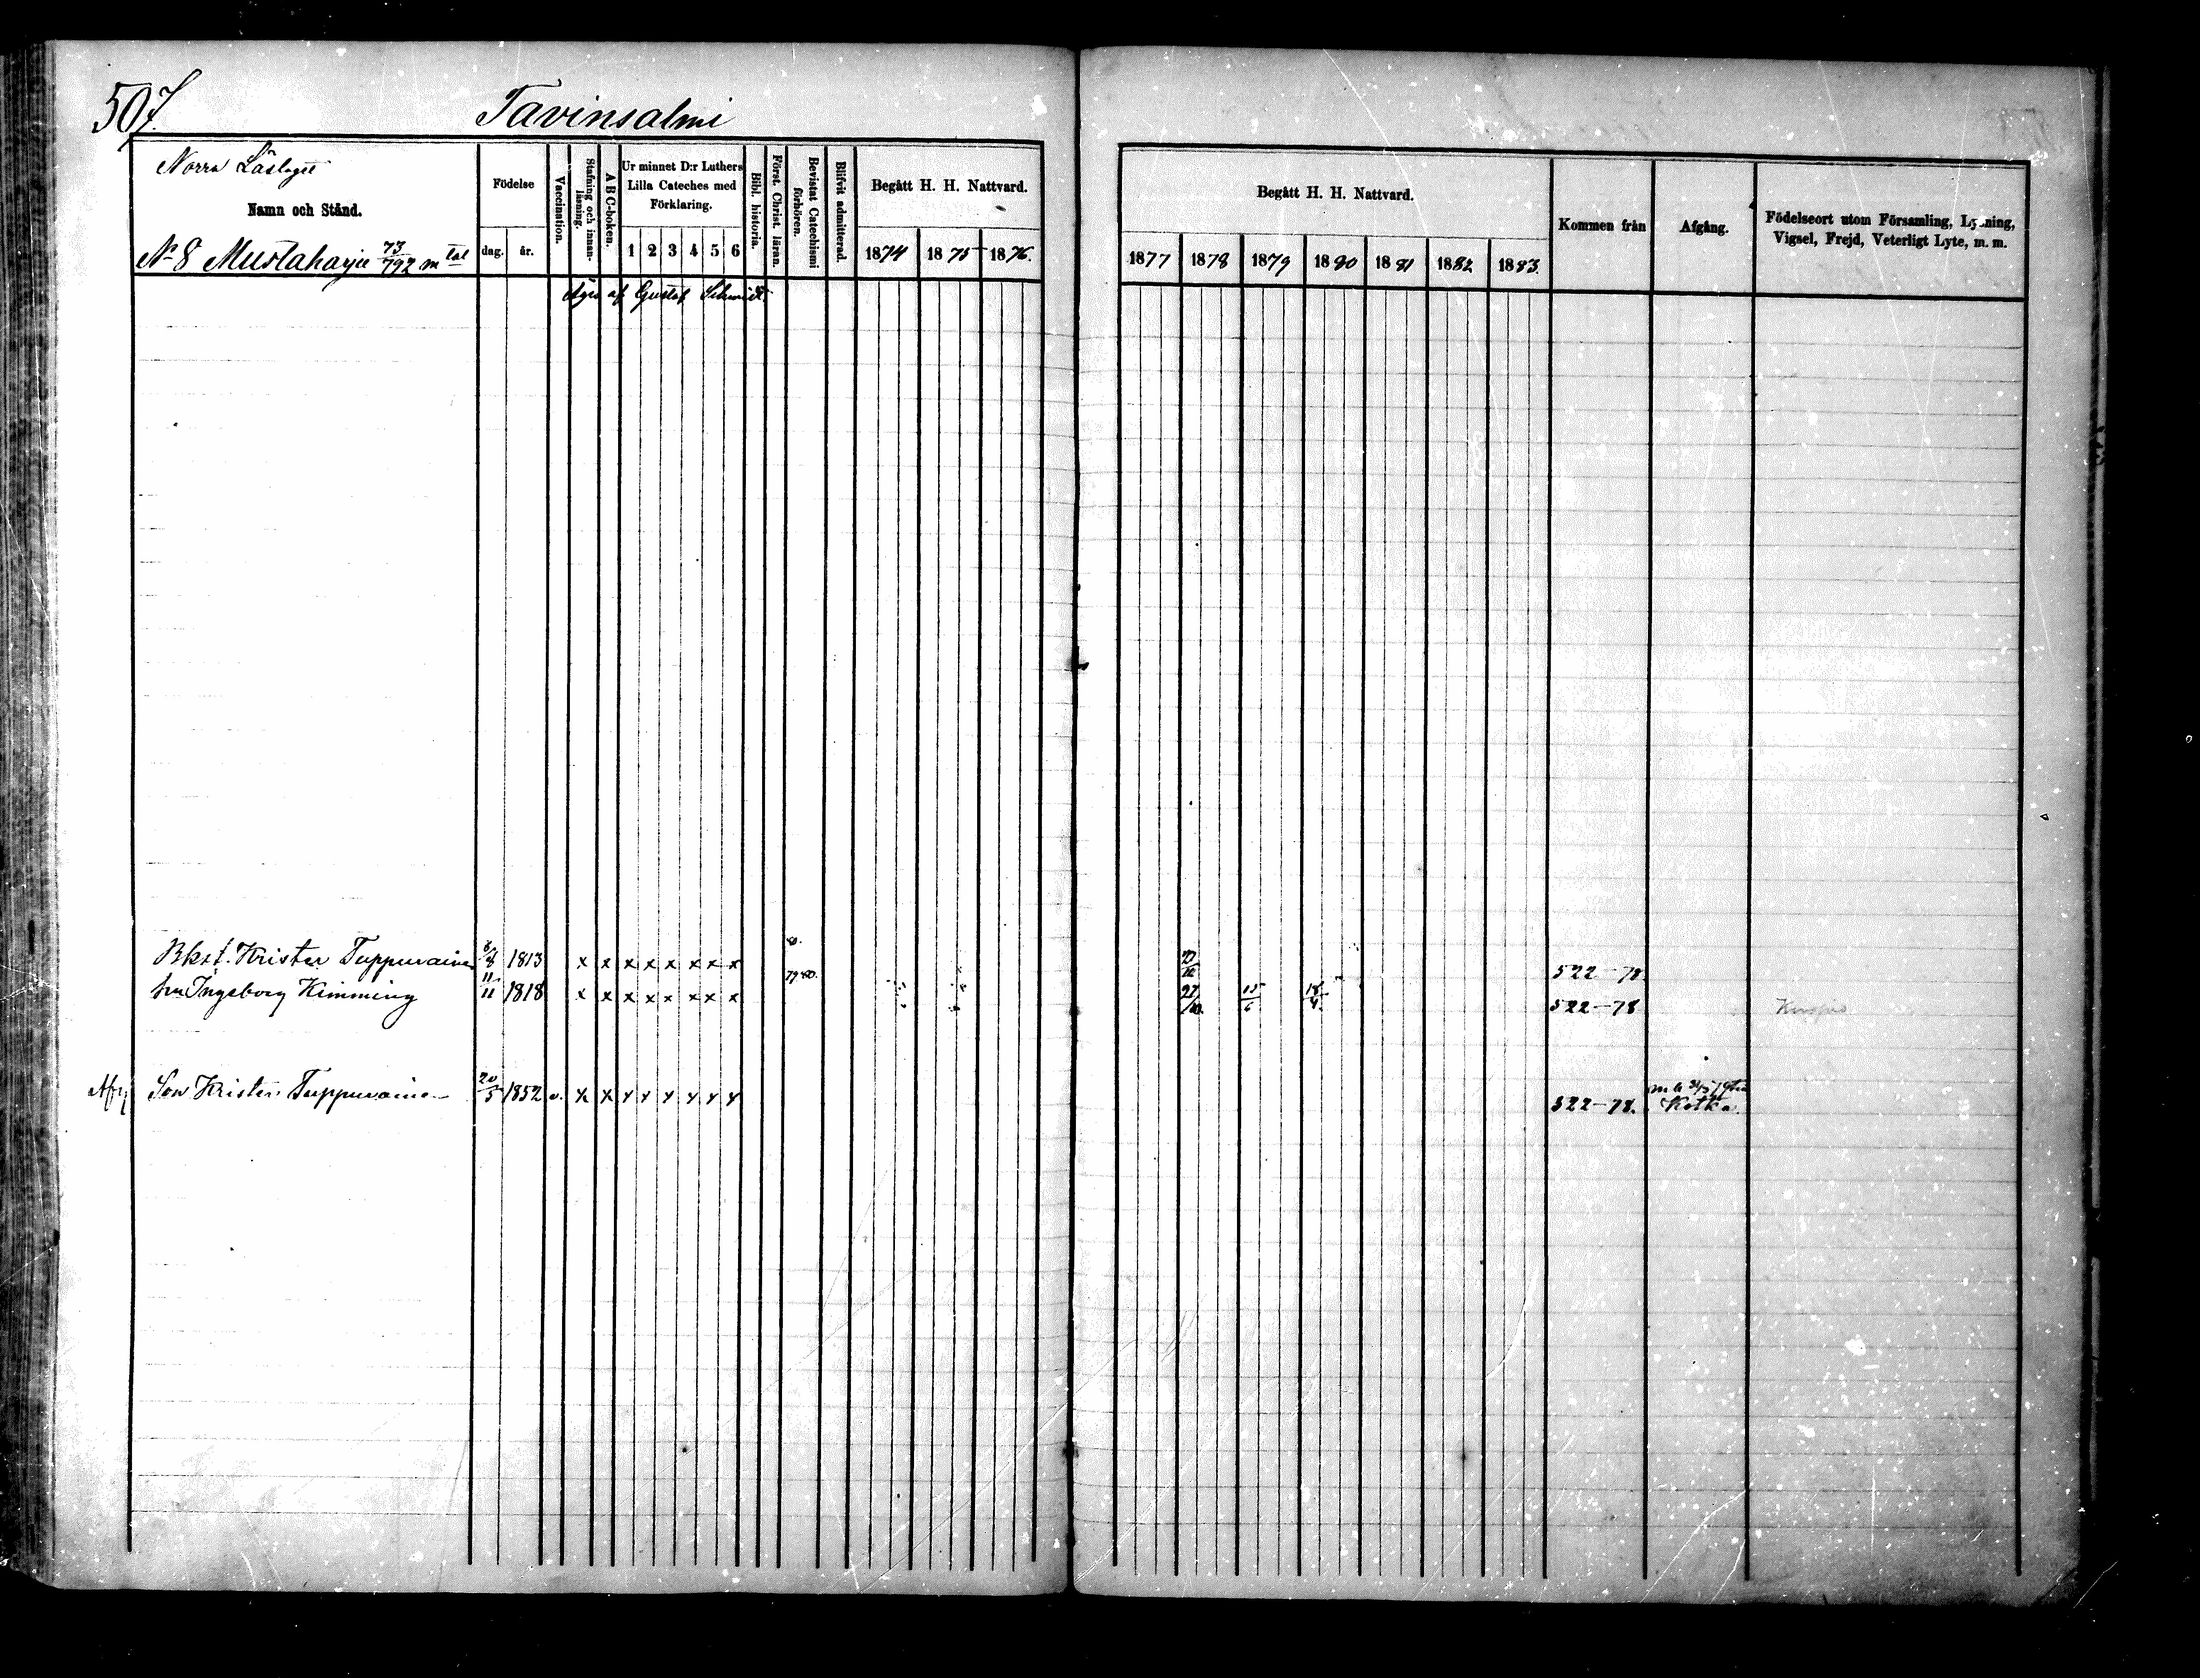 507.
Tavinsalmi
Norra Läslaget
Namn och Stånd.
No 8 Mustaharju 73/792 mtal
Födelse
dag. år.
Vaccination.
Stafning och innanläsning.
A B C-boken.
Ur minnet D:r Luthers
Lilla Cateches med
Förklaring.
1 2 3 4 5 6
Bibl. historia.
Först. Christ. läran.
Bevistat Catechismi förhören.
Blifvit admitterad.
Begått H. H. Nattvard.
1874 1875 1876.
Begått H. H. Nattvard.
1877 1878 1879 1880 1881 1882 1883.
Kommen från
Afgång.
Födelseort utom Församling, Lysning,
Vigsel, Frejd, Veterligt Lyte, m. m.
Äges af Gustaf Schmidt
Bkst. Krister Tuppurainen 8/8 1813 x x x x x x x x 522—78.
hu Ingeborg Kimming 11/11 1818 x x x x x x x x 79 80. 27/10 15/6 18/4 522—78 Kuopio
Afg Son Krister Tuppurainen 20/5 1852 v. x x x x x x x x 522—78. Kotka.